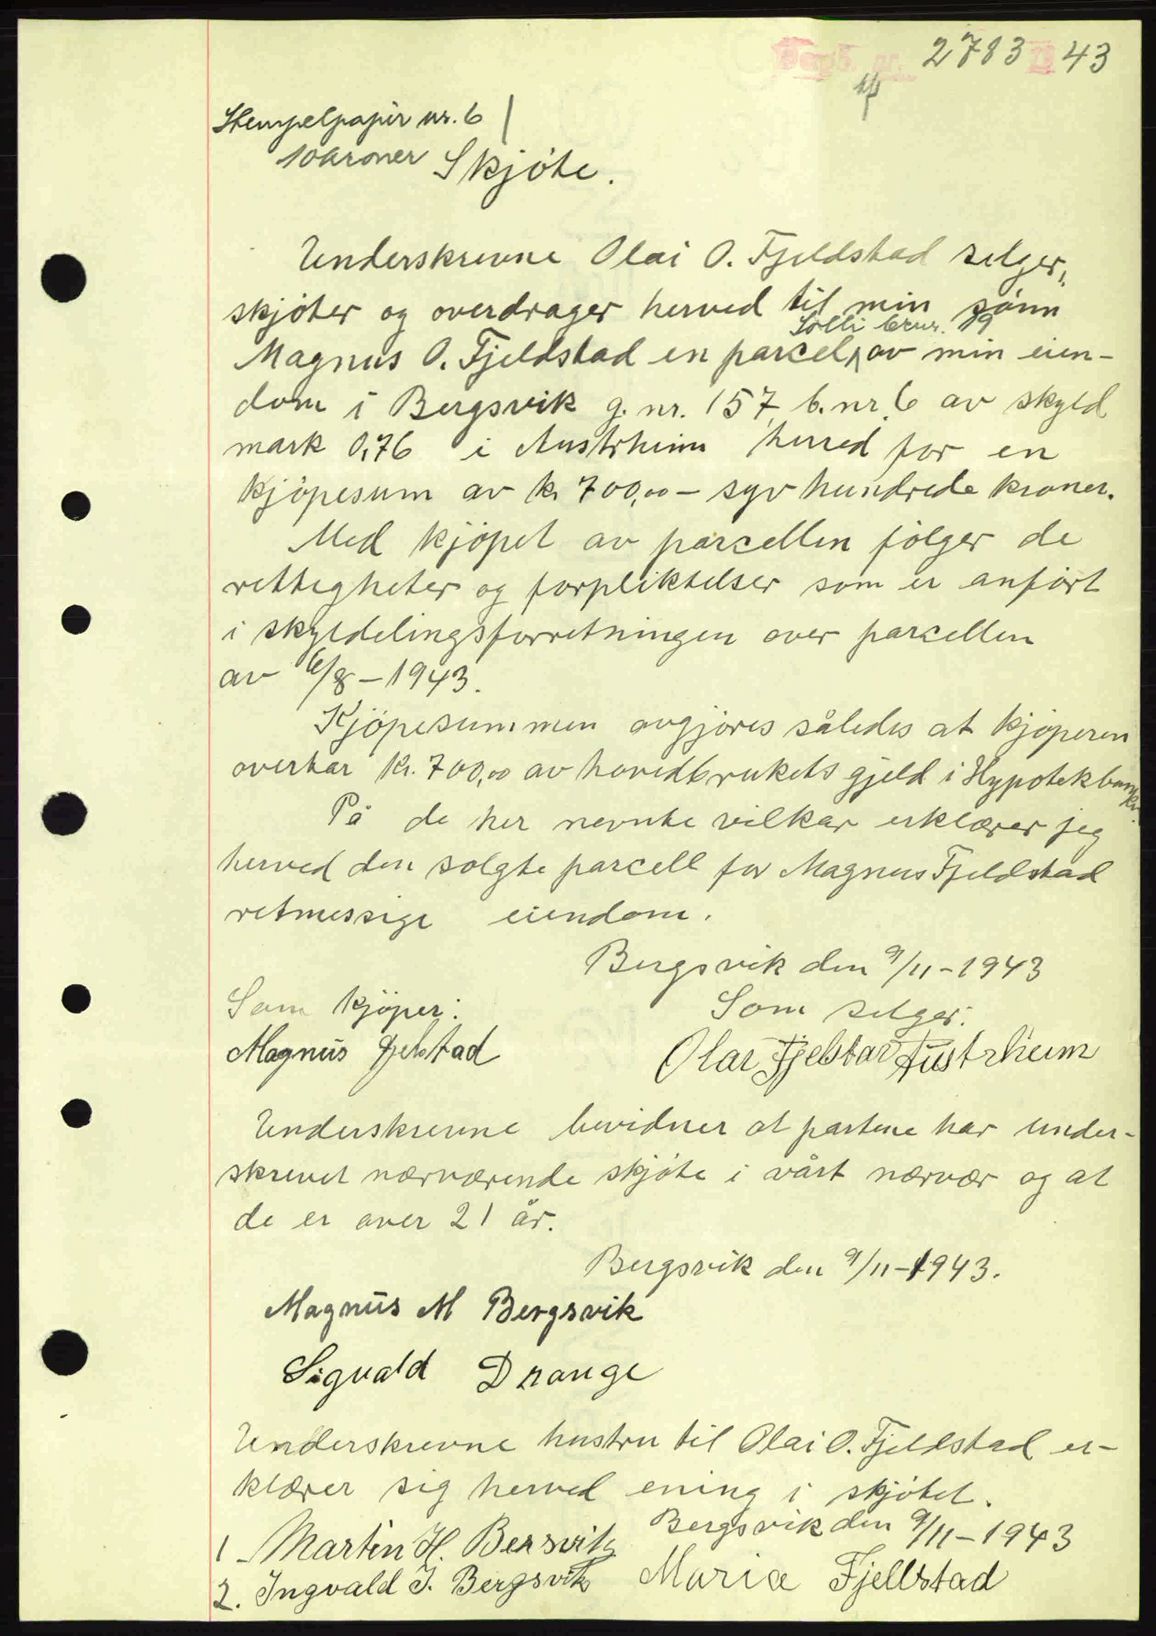 Dagb. nr. 2783 19 43
Stempelpapir nr. 6
10 kroner Skjøte.
Underskrevne Olai O. Fjeldstad selger,
skjøter og overdrager herved til min sønn
Solli brnr. 19
Magnus O. Fjeldstad en parcel av min eien-
dom i Bergsvik g. nr. 157 b. nr. 6 av skyld
mark 0,76 i Austrheim herred for en
kjøpesum av kr 700,00 – syv hundrede kroner.
Med kjøpet av parcellen følger de
rettigheter og forpliktelser som er anført
i skyldelingsforretningen over parcellen
av 6/8 – 1943.
Kjøpesummen avgjøres således at kjøperen
overtar kr. 700,00 av hovedbrukets gjeld i Hypotekbanken.
På de her nevnte vilkar erklærer jeg
herved den solgte parcell for Magnus Fjeldstad
retmessige eiendom.
Bergsvik den 9/11 – 1943
Som kjøper: Som selger:
Magnus Fjelstad Olai Fjelstad Austrheim
Underskrevne bevidner at partene har under-
skrevet nærværende skjøte i vårt nærvær og at
de er over 21 år.
Bergsvik den 9/11 – 1943.
Magnus M Bergsvik
Sigvald Drange
Underskrevne hustru til Olai O. Fjeldstad er-
klærer sig herved ening i skjøtet.
Bergsvik den 9/11 – 1943
1 Martin H. Bersvik
2. Ingvald J. Bergsvik Maria Fjellstad